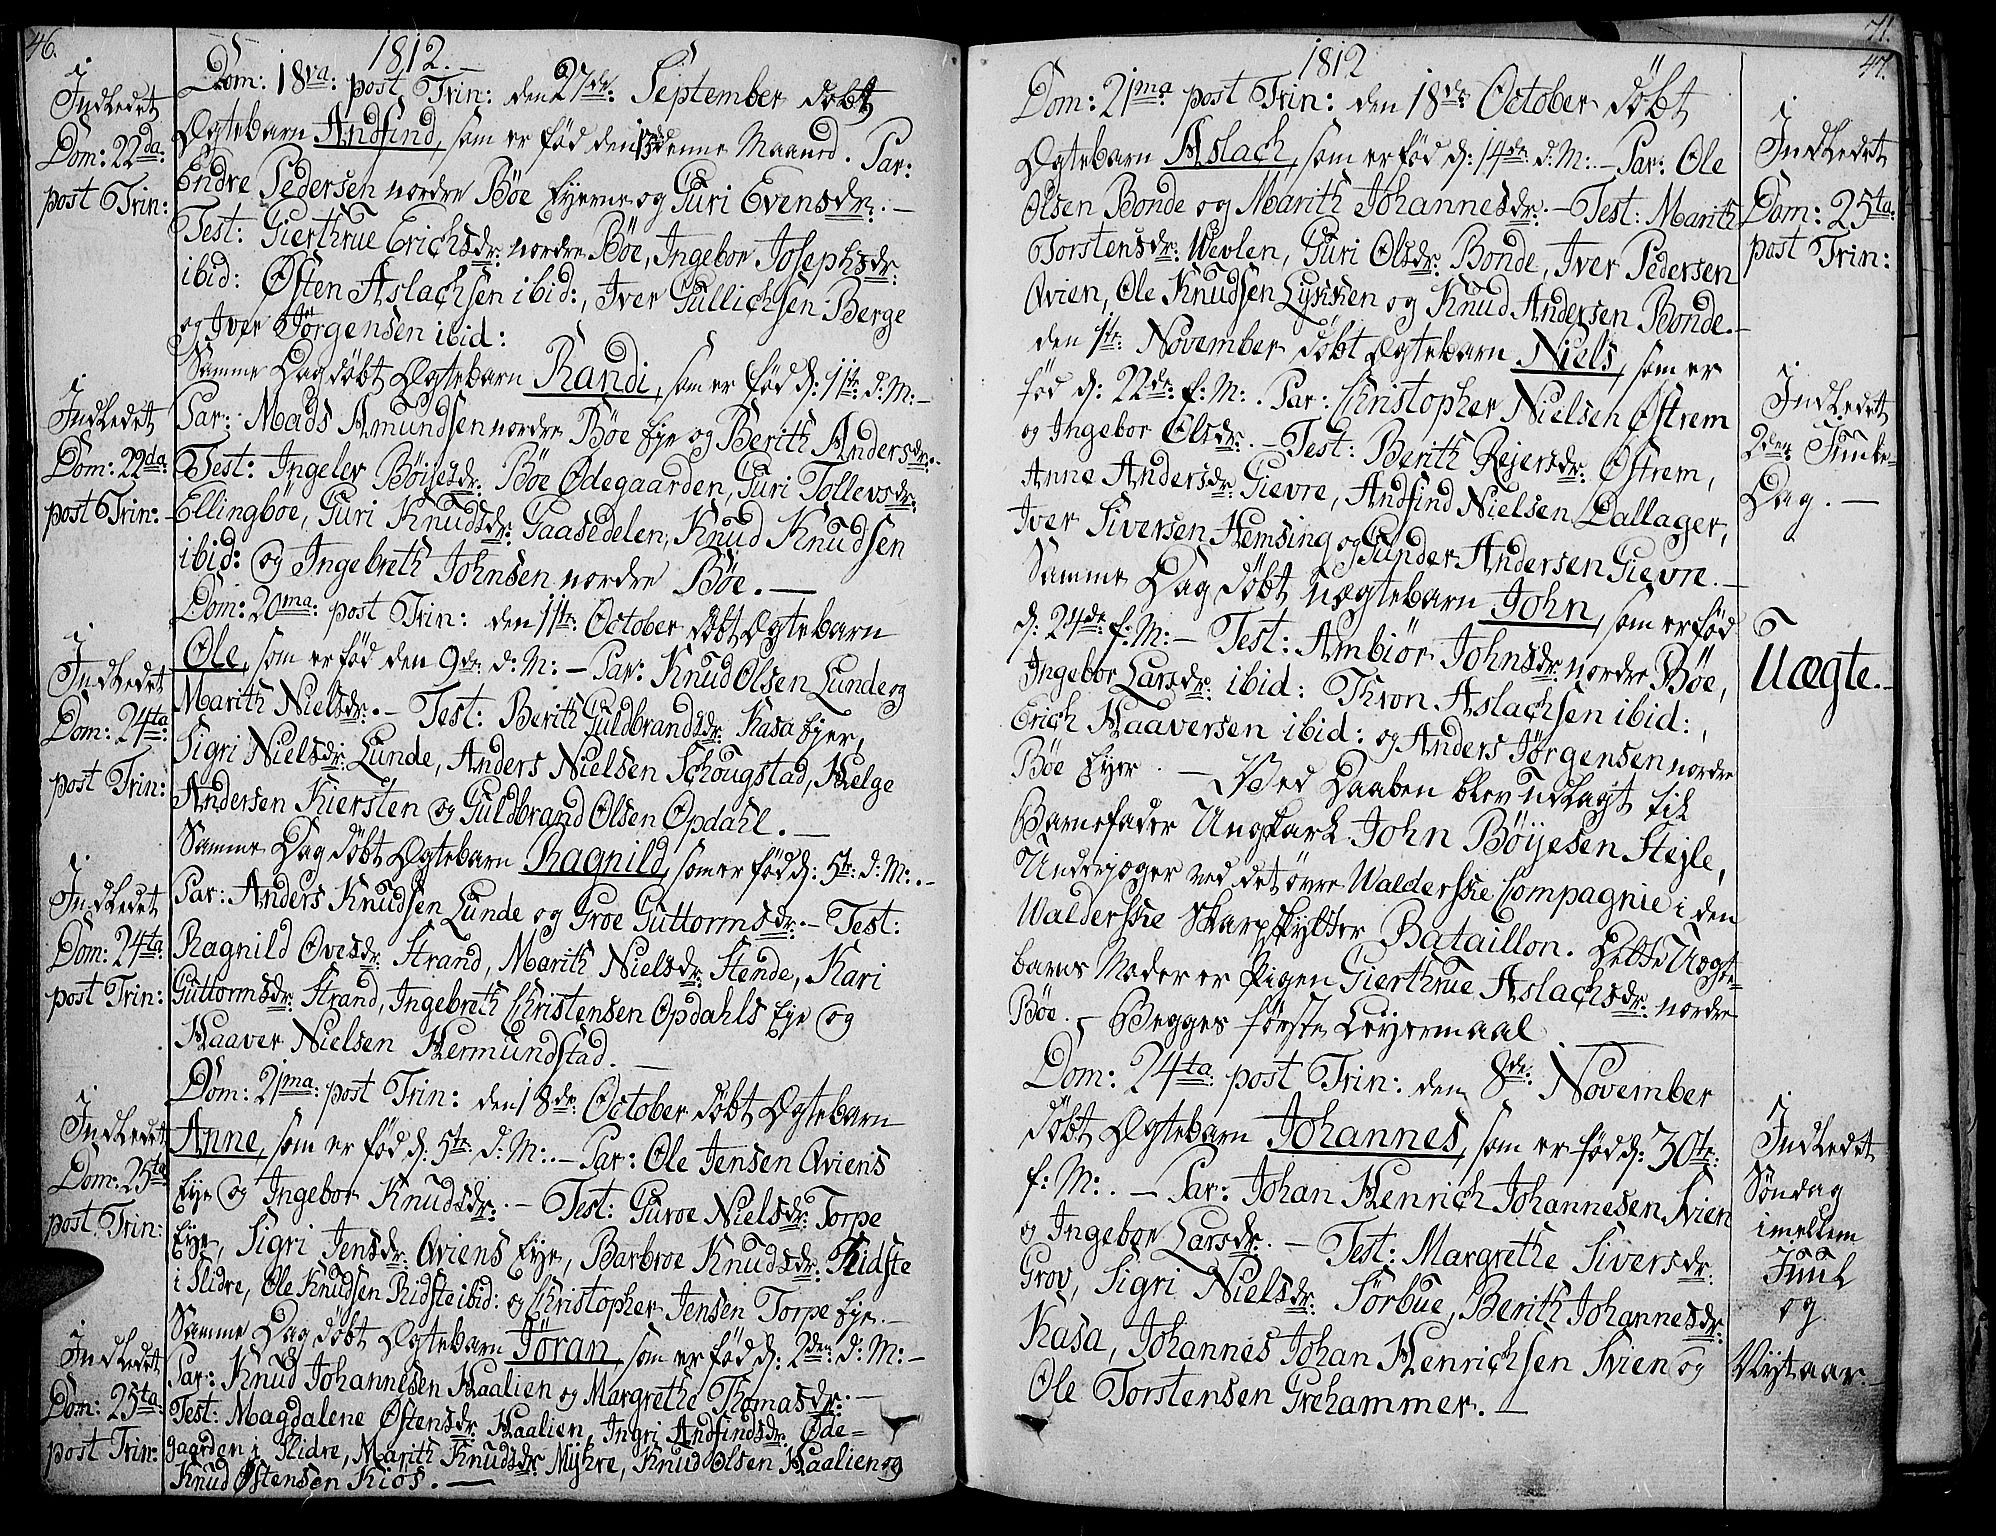 46.
1812.
Dom: 18va: post Trin: den 27de September døbt
Ægtebarn Andfind, som er fød den denne Maaned. Par:
Endre Pedersen nordre Böe Eyerne og Guri Evensdr: –
Test: Gierthrue Erichsdr: nordre Böe, Ingebor Josephsdr:
ibid: Østen Aslachsen ibid:, Iver Gullichsen Berge
og Iver Jörgensen ibid:
Indledet
Dom: 22da:
post Trin:
Samme Dag döbt Ægtebarn Randi, som er fød d: 11te d: M: –
Par: Mads Amundsen nordre Böe Eye og Berith Andersdr: –
Test: Ingeler Böyesdr: Böe Ødegaarden, Guri Tollevsdr:
Ellingböe, Guri Knudsdr: Gaasedelen, Knud Knudsen
ibid: og Ingebreth Johnsen nordre Böe. –
Indledet
Dom: 22da:
post Trin:
Dom: 20ma: post Trin: den 11te October döbt Ægtebarn
Ole, som er fød den 9de d: M: – Par: Knud Olsen Lunde og
Marith Nielsdr: – Test: Berith Guldbrandsdr: Kasa Eyer,
Sigri Nielsdr: Lunde, Anders Nielsen Schougstad, Helge
Andersen Kiersten og Guldbrand Olsen Opdahl. –
Indledet
Dom: 24ta
post Trin:
Samme Dag döbt Ægtebarn Ragnild, som er fød d: 5te d: M: –
Par: Anders Knudsen Lunde og Groe Guttormsdr: – Test:
Ragnild Ovesdr: Strand, Marith Nielsdr: Stende, Kari
Guttormsdr: Strand, Ingebreth Christensen Opdahls Eye og
Haaver Nielsen Hermundstad. –
Indledet
Dom: 24ta
post Trin:
Dom: 21ma: post Trin: den 18de October döbt Ægtebarn
Anne, som er fød d: 5te d: M: – Par: Ole Jensen Qviens
Eye og Ingebor Knudsdr: – Test: Guroe Nielsdr: Torpe
Eye, Sigri Jensdr: Qviens Eye, Barbroe Knudsdr: Ridste
i Slidre, Ole Knudsen Ridste ibid: og Christopher Jensen Torpe Eye. –
Indledet
Dom: 25ta
post Trin:
Samme Dag döbt Ægtebarn Jöran, som er fød d: 2den d: M: –
Par: Knud Johannesen Haalien og Margrethe Thomasdr: –
Test: Magdalene Østensdr: Haalien, Ingri Andfindsdr: Øde=
gaarden i Slidre, Marith Knudsdr: Myhre, Knud Olsen Haalien og
Knud Østensen Kiös. –
Indledet
Dom: 25ta
post Trin:
71.
47.
1812
Dom: 21ma post Trin: den 18de October döbt
Ægtebarn Aslach, som er fød d: 14de d: M: – Par: Ole
Olsen Bonde og Marith Johannesdr: – Test: Marith
Torstensdr: Wevlen, Guri Olsdr: Bonde, Iver Pedersen
Qvien, Ole Knudsen Lykken og Knud Andersen Bonde. –
Indledet
Dom: 25ta:
post Trin:
den 1te November döbt Ægtebarn Niels, som er
fød d: 22de f: M: . Par: Christopher Nielsen Østrem
og Ingebor Olsdr: – Test: Berith Rejersdr: Østrem,
Anne Andersdr: Gievre, Andfind Nielsen Dallager,
Iver Siversen Hemsing og Gunder Andersen Gievre. –
Indledet
2den Juule=
Dag. –
Samme Dag döbt uægtebarn John, som er fød
d: 24de f: M: – Test: Ambiör Johnsdr: nordre Böe,
Ingebor Larsdr: ibid: Thron Aslachsen ibid:,
Erich Haaversen ibid: og Anders Jörgensen nordre
Böe Eyer. – Ved Daaben blev udlagt til
Barnefader Ungkarl John Böyesen Stejle,
Underjæger ved det övre Walderske Compagnie i den
Walderske Skarpskytter Bataillon. Dette Uægte=
barns Moder er Pigen Gierthrue Aslachsdr: nordre
Böe. – Begges förste Leyermaal. –
Uægte. –
Dom: 24ta: post Trin: den 8de: November
döbt Ægtebarn Johannes, som er fød d: 30te:
f: M: . – Par: Johan Henrich Johannesen Svien
og Ingebor Larsdr: – Test: Margrethe Siversdr:
Grov, Sigri Nielsdr: Sörbue, Berith Johannesdr:
Kasa, Johannes Johan Henrichsen Svien og
Ole Torstensen Grehammer. –
Indledet
Søndag
imellem
Juul
og
Nytaar –